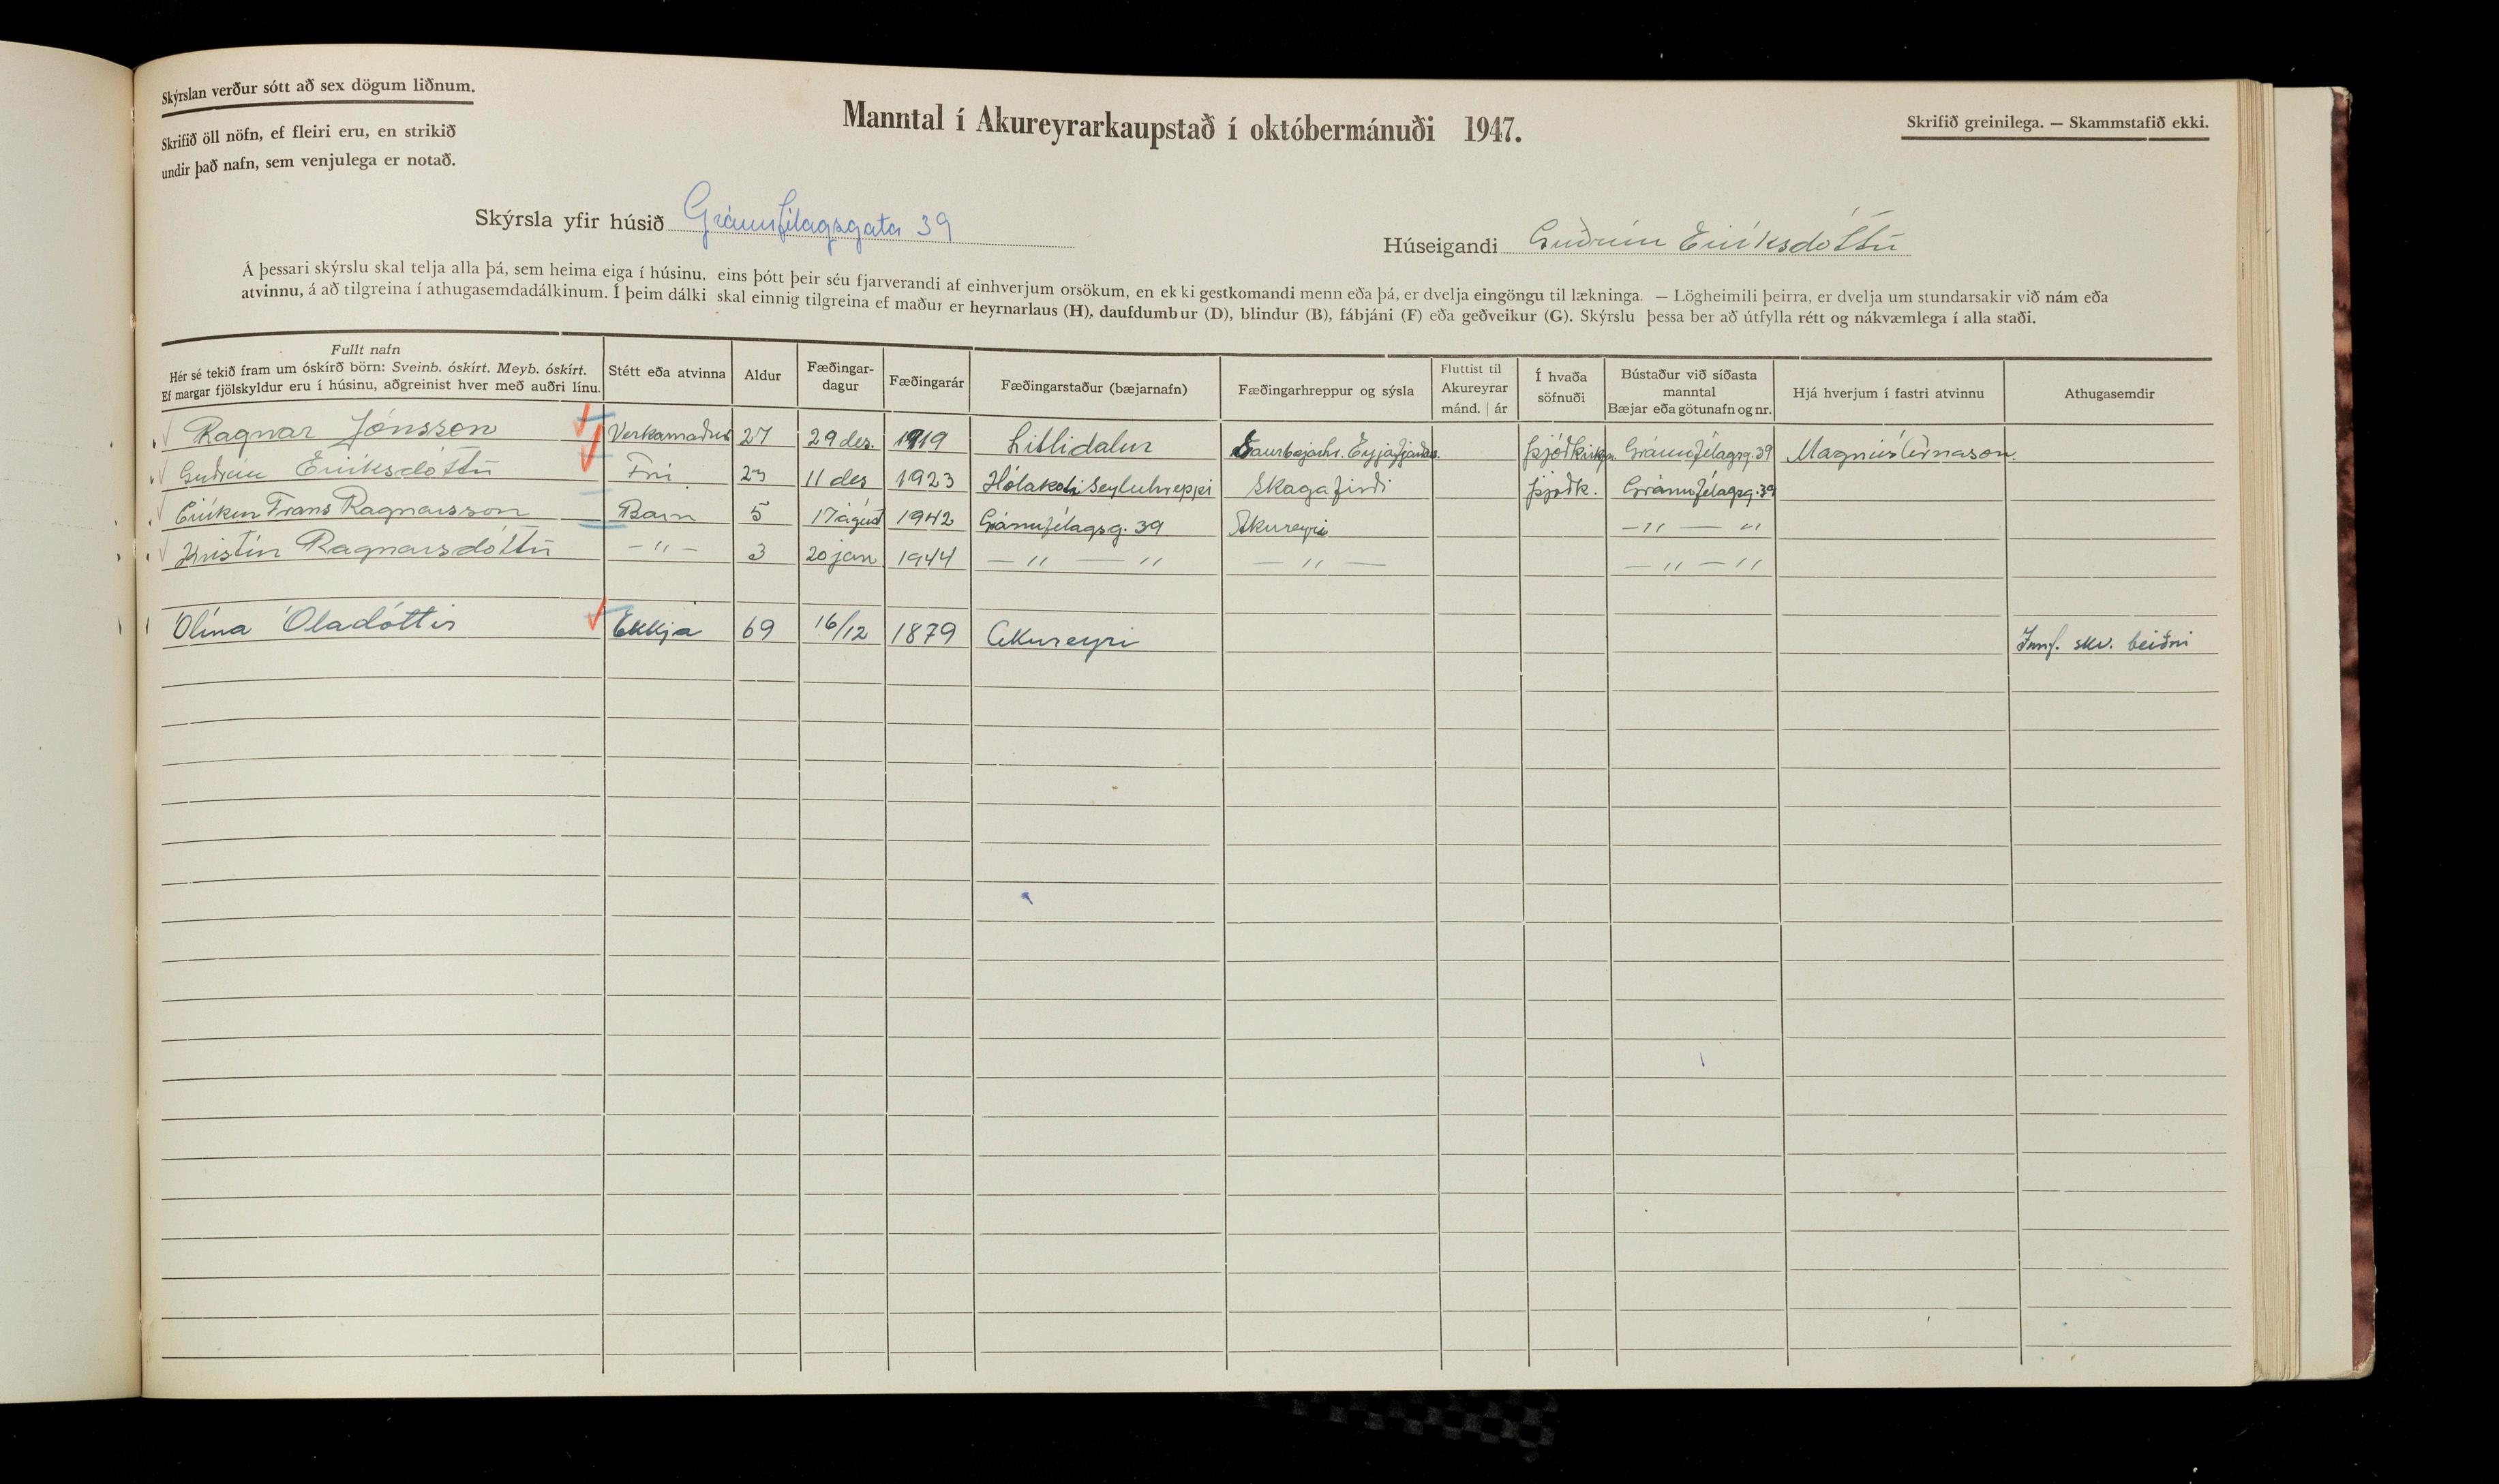 Skýrslan verður sótt að sex dögum liðnum.
Skrifið öll nöfn, ef fleiri eru, en strikið
undir það nafn, sem venjulega er notað.
Manntal í Akureyrarkaupstað í októbermánuði 1947.
Skrifið greinilega. — Skammstafið ekki.
Skýrsla yfir húsið Gránufélagsgata 39
Húseigandi Guðrún Eiríksdóttir
Á þessari skýrslu skal telja alla þá, sem heima eiga í húsinu, eins þótt þeir séu fjarverandi af einhverjum orsökum, en ekki gestkomandi menn eða þá, er dvelja eingöngu til lækninga. — Lögheimili þeirra, er dvelja um stundarsakir við nám eða
atvinnu, á að tilgreina í athugasemdadálkinum. Í þeim dálki skal einnig tilgreina ef maður er heyrnarlaus (H), daufdumbur (D), blindur (B), fábjáni (F) eða geðveikur (G). Skýrslu þessa ber að útfylla rétt og nákvæmlega í alla staði.
Fullt nafn
Hér sé tekið fram um óskírð börn: Sveinb. óskírt. Meyb. óskírt.
Ef margar fjölskyldur eru í húsinu, aðgreinist hver með auðri línu.
Stétt eða atvinna
Aldur
Fæðingar-
dagur
Fæðingarár
Fæðingarstaður (bæjarnafn)
Fæðingarhreppur og sýsla
Fluttist til
Akureyrar
mánd. | ár
Í hvaða
söfnuði
Bústaður við síðasta
manntal
Bæjar eða götunafn og nr.
Hjá hverjum í fastri atvinnu
Athugasemdir
Ragnar Jónsson Verkamaður 27 29 des. 1919 Litlidalur Saurbæjarhr. Eyjafjarðars. Þjóðkirkju. Gránufélagsg. 39 Magnús Árnason.
Guðrún Eiríksdóttir Frú 23 11 des 1923 Hólakoti Seyluhreppi Skagafirði Þjóðk. Gránufélagsg. 39
Frans Ragnarsson Barn 5 17 ágúst 1942 Gránufélagsg. 39 Akureyri — " — "
Kristín Ragnarsdóttir — " — 3 20 jan 1944 — " — " — " — — " — "
Ólína Óladóttir Ekkja 69 16/12 1879 Akureyri Innf. skv. beiðni